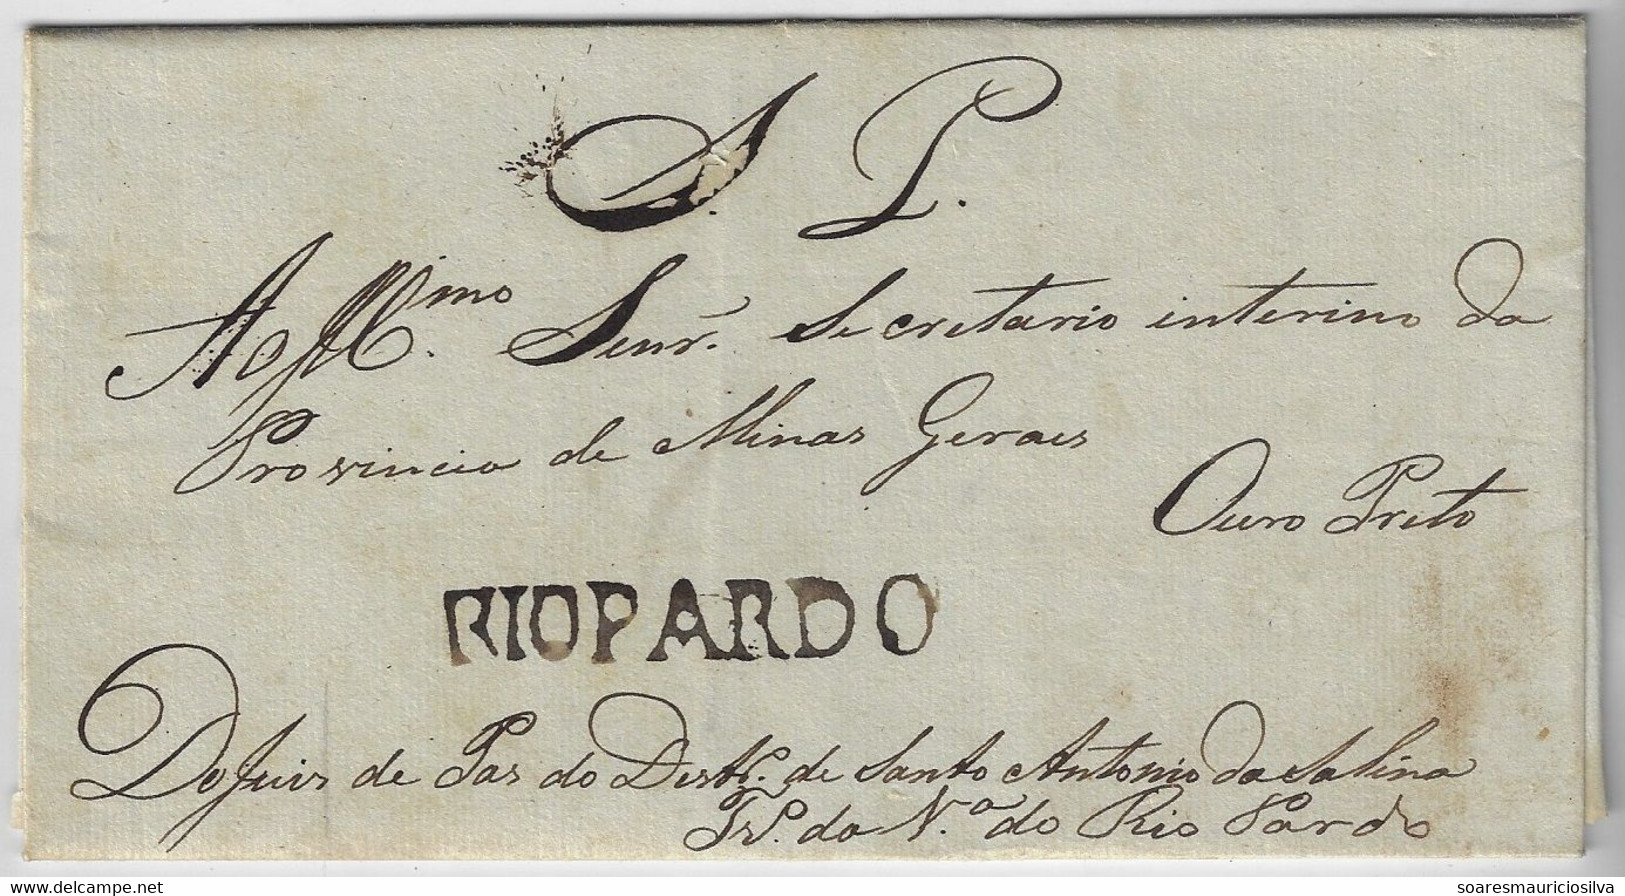 S. P.
Ao Illmo. Senr. Secretario interino da
Provincia de Minas Geraes
Ouro Preto
RIOPARDO
Do Juis de Pas do Destr. de Santo Antonio da Salina
Tr. da Va. do Rio Pardo
www.delcampe.net
soaresmauriciosilva